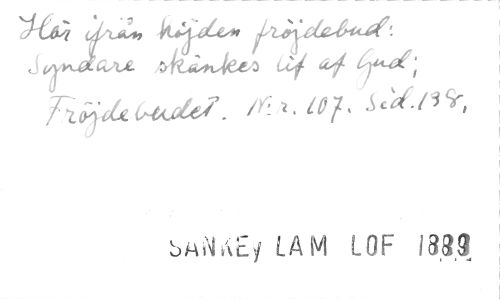 Hör ifrån höjden fröjdebud:
Syndare skänkes lif af Gud;
Fröjdebudet. N:r. 107. Sid. 198.
SANKEY LAM LOF 1889